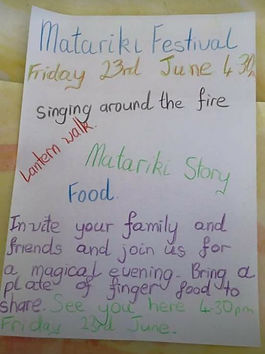 Matariki Festival
Friday 23rd June 4.30
Singing around the fire
Lantern walk.
Matariki Story
Food.
Invite your family and
friends and join us for
a magical evening. Bring a
plate of finger food to
share. See you here 4.30pm
Friday 23rd June.